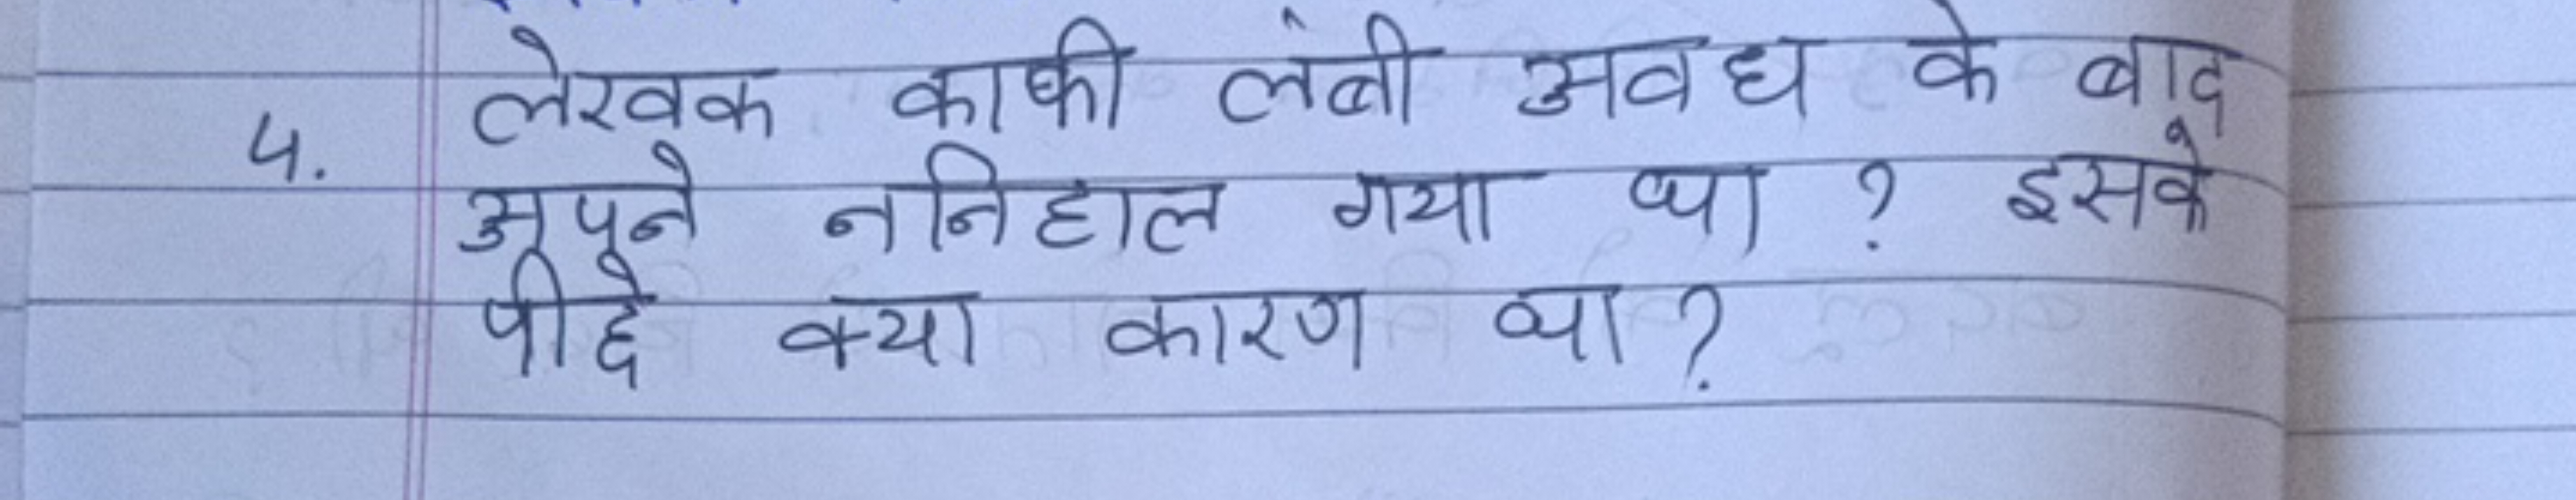 लेखक काफी लंबी अवध के बाद
4. अपने ननिहाल गया था ? इसके
पीछे क्या कारण था ?